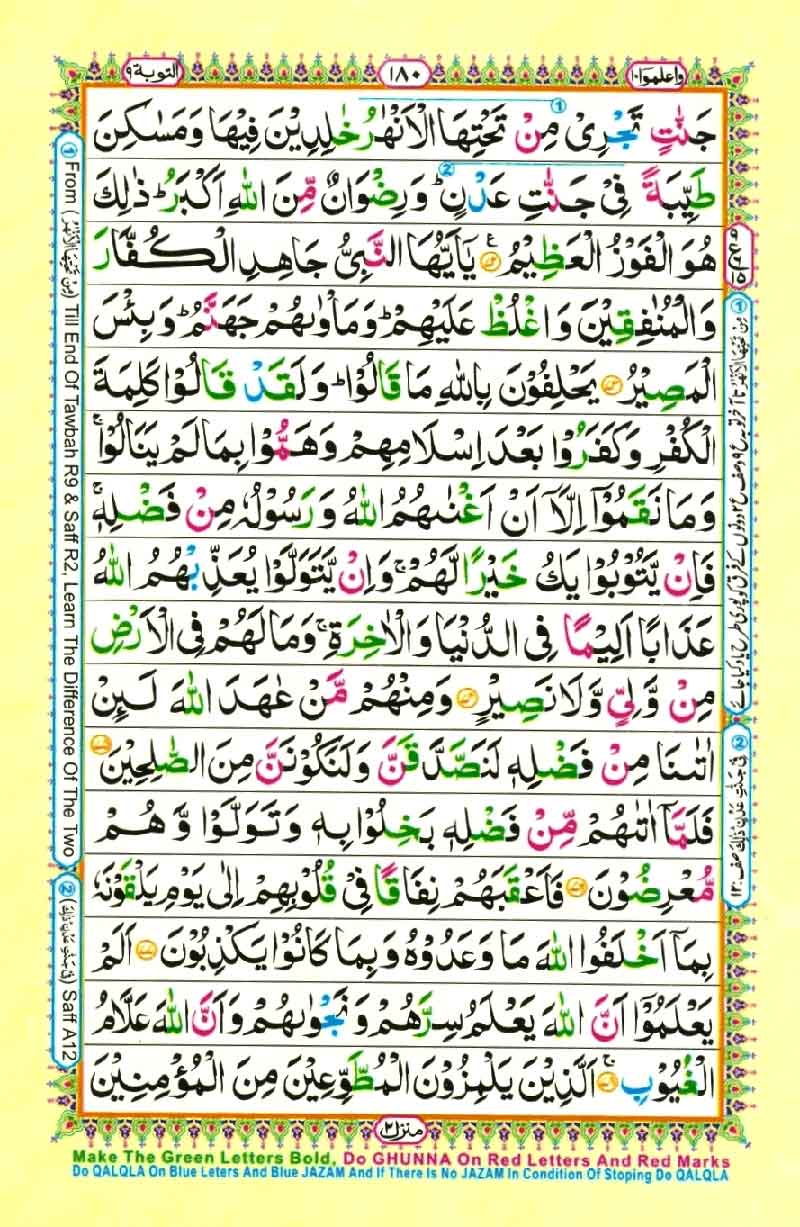 التوبة ٩
١٨٠
واعلموا ١٠
جَنّٰتٍ تَجْرِیْ مِنْ تَحْتِهَا الْاَنْهٰرُ خٰلِدِیْنَ فِیْهَا وَمَسٰكِنَ
طَیِّبَةً فِیْ جَنّٰتِ عَدْنٍ ؕ وَرِضْوَانٌ مِّنَ اللّٰهِ اَكْبَرُ ؕ ذٰلِكَ
هُوَ الْفَوْزُ الْعَظِیْمُ یٰۤاَیُّهَا النَّبِیُّ جَاهِدِ الْكُفَّارَ
وَالْمُنٰفِقِیْنَ وَاغْلُظْ عَلَیْهِمْ ؕ وَمَاْوٰىهُمْ جَهَنَّمُ ؕ وَبِئْسَ
الْمَصِیْرُ یَحْلِفُوْنَ بِاللّٰهِ مَا قَالُوْا ؕ وَلَقَدْ قَالُوْا كَلِمَةَ
الْكُفْرِ وَكَفَرُوْا بَعْدَ اِسْلَامِهِمْ وَهَمُّوْا بِمَا لَمْ یَنَالُوْا ۚ
وَمَا نَقَمُوْۤا اِلَّاۤ اَنْ اَغْنٰىهُمُ اللّٰهُ وَرَسُوْلُهٗ مِنْ فَضْلِهٖ ۚ
فَاِنْ یَّتُوْبُوْا یَكُ خَیْرًا لَّهُمْ ۚ وَاِنْ یَّتَوَلَّوْا یُعَذِّبْهُمُ اللّٰهُ
عَذَابًا اَلِیْمًا فِی الدُّنْیَا وَالْاٰخِرَةِ ۚ وَمَا لَهُمْ فِی الْاَرْضِ
مِنْ وَّلِیٍّ وَّلَا نَصِیْرٍ وَمِنْهُمْ مَّنْ عٰهَدَ اللّٰهَ لَىِٕنْ
اٰتٰىنَا مِنْ فَضْلِهٖ لَنَصَّدَّقَنَّ وَلَنَكُوْنَنَّ مِنَ الصّٰلِحِیْنَ
فَلَمَّاۤ اٰتٰىهُمْ مِّنْ فَضْلِهٖ بَخِلُوْا بِهٖ وَتَوَلَّوْا وَّهُمْ
مُّعْرِضُوْنَ فَاَعْقَبَهُمْ نِفَاقًا فِیْ قُلُوْبِهِمْ اِلٰى یَوْمِ یَلْقَوْنَهٗ
بِمَاۤ اَخْلَفُوا اللّٰهَ مَا وَعَدُوْهُ وَبِمَا كَانُوْا یَكْذِبُوْنَ اَلَمْ
یَعْلَمُوْۤا اَنَّ اللّٰهَ یَعْلَمُ سِرَّهُمْ وَنَجْوٰىهُمْ وَاَنَّ اللّٰهَ عَلَّامُ
الْغُیُوْبِ اَلَّذِیْنَ یَلْمِزُوْنَ الْمُطَّوِّعِیْنَ مِنَ الْمُؤْمِنِیْنَ
منزل ٢
① From (مِنْ تَحْتِهَا الْاَنْهٰرُ) Till End Of Tawbah R9 & Saff R2, Learn The Difference Of The Two
② (فِیْ جَنّٰتِ عَدْنٍ ذٰلِكَ) Saff A12
② فِیْ جَنّٰتِ عَدْنٍ ذٰلِكَ صف ١٢
Make The Green Letters Bold, Do GHUNNA On Red Letters And Red Marks
Do QALQLA On Blue Leters And Blue JAZAM And If There Is No JAZAM In Condition Of Stoping Do QALQLA